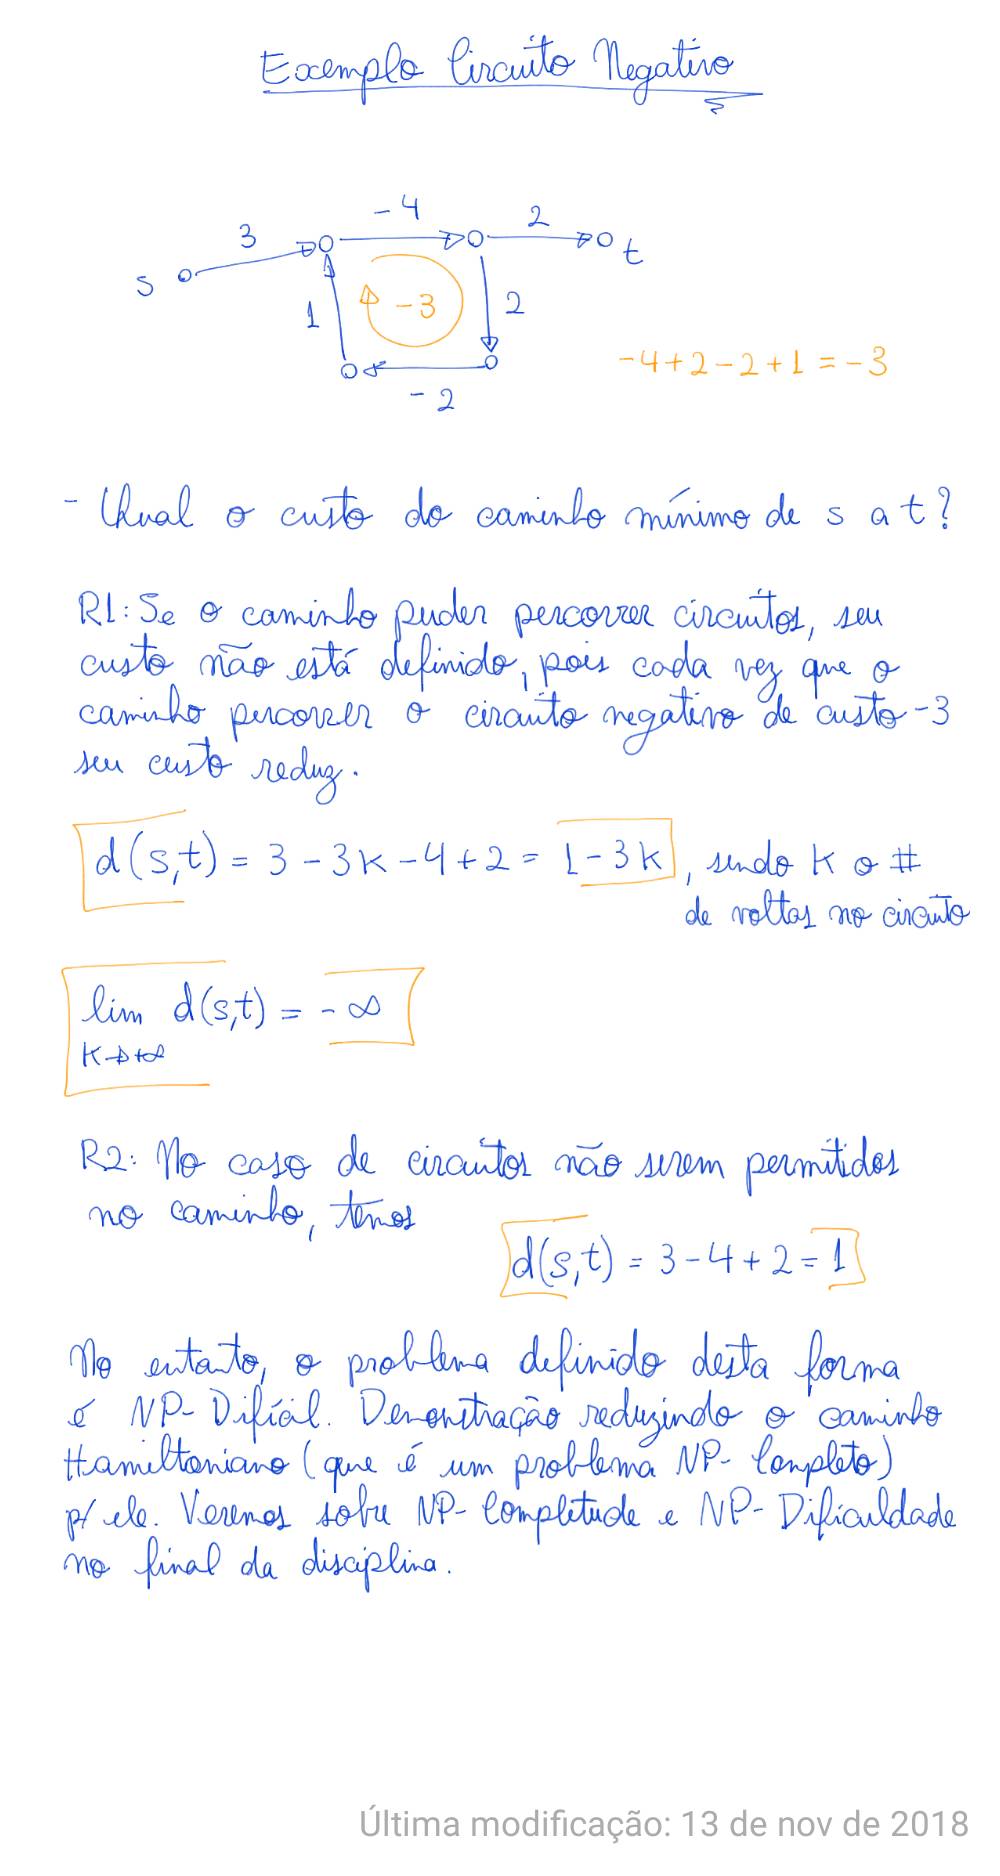 Exemplo Circuito Negativo
3
-4
2
s
t
1
-3
2
-2
-4+2-2+1=-3
- Qual o custo do caminho mínimo de s a t?
R1: Se o caminho puder percorrer circuitos, seu
custo não está definido, pois cada vez que o
caminho percorrer o circuito negativo de custo -3
seu custo reduz.
d(s,t) = 3 - 3k - 4 + 2 = 1 - 3k, sendo k o #
de voltas no circuito
lim d(s,t) = - ∞
k→+∞
R2: No caso de circuitos não serem permitidos
no caminho, temos
d(s,t) = 3 - 4 + 2 = 1
No entanto, o problema definido desta forma
é NP-Difícil. Demonstração reduzindo o caminho
Hamiltoniano (que é um problema NP-Completo)
p/ ele. Veremos sobre NP-Completude e NP-Dificuldade
no final da disciplina.
Última modificação: 13 de nov de 2018